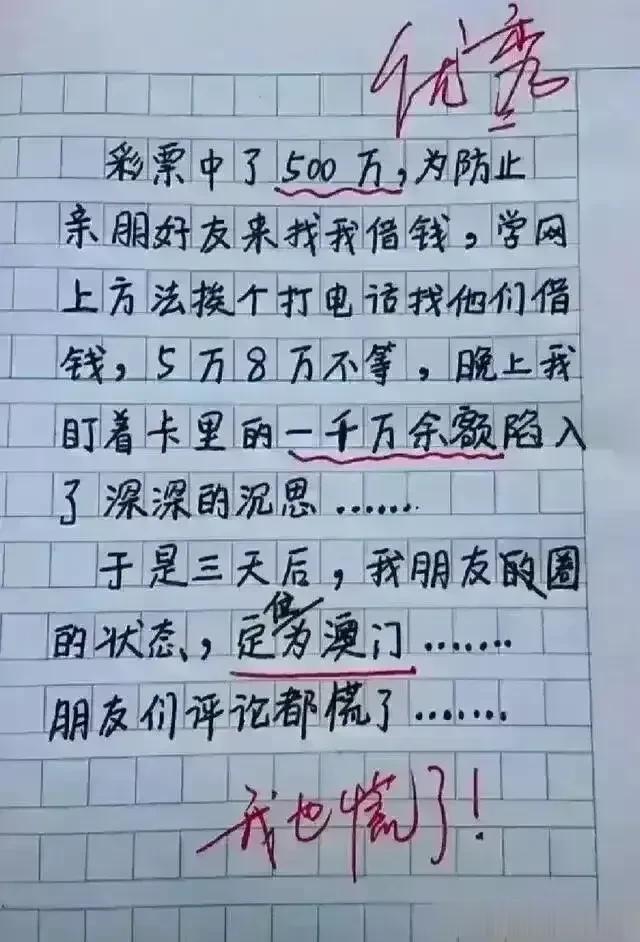 优秀
彩票中了500万,为防止
亲朋好友来找我借钱,学网
上方法挨个打电话找他们借
钱,5万8万不等,晚上我
盯着卡里的一千万余额陷入
了深深的沉思……
于是三天后,我朋友的圈
的状态、,定位为澳门…….
朋友们评论都慌了…….
我也慌了!